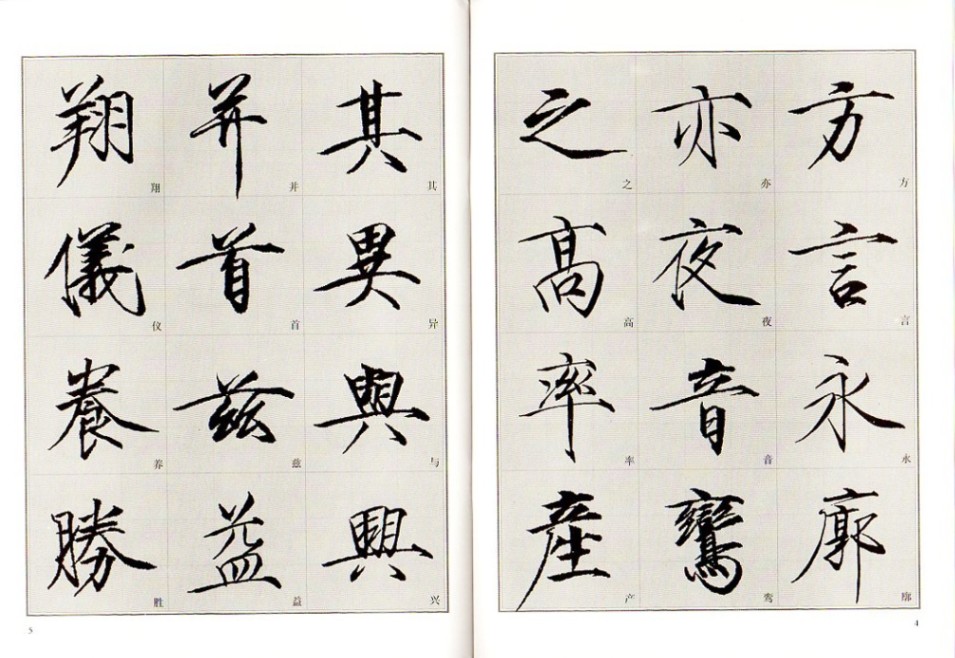 方 方
言 言
永 永
廓 廓
亦 亦
夜 夜
音 音
鸞 鸾
之 之
髙 高
率 率
產 产
4
其 其
異 异
與 与
興 兴
并 并
首 首
兹 兹
益 益
翔 翔
儀 仪
養 养
勝 胜
5